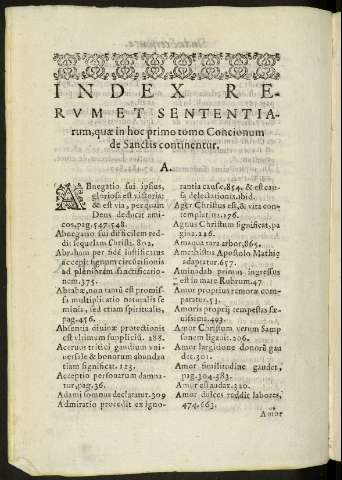 INDEX RE-
RVM ET SENTENTIA-
rum, quæ in hoc primo tomo Concionum
de Sanctis continentur.
A.
ABnegatio sui ipsius,
gloriosi est victoria:
& est via, per quam
Deus deducit ami-
cos, pag. 547. 548.
Abnegatio sui difficilem red-
dit sequelam Christi. 802.
Abraham per fidé iustificatus
accepit signum circũcisionis
ad pleniorem iustificatio-
nem. 375.
Abrahæ, non tantũ est promis-
sa multiplicatio naturalis se
minis, sed etiam spiritualis,
pag. 456.
Absentia diuinæ protectionis
est vltimum suppliciũ. 288.
Aceruus tritici gaudium vni-
uersale & bonorum abundan
tiam significat. 123.
Acceptio personarum damna-
tur, pag. 36.
Adami somnus declaratur. 309
Admiratio procedit ex igno-
rantia causæ. 854. & est cau-
sa delectationis. ibid.
Ager Christus est, & vita con-
templatiua. 176.
Agnus Christum significat, pa
gina. 226.
Amaquatara arbor, 865.
Amethistus Apostolo Mathię
adaptatur. 657.
Aminadab primus ingressus
est in mare Rubrum. 47
Amor proprius remoræ com-
paratur. 53.
Amoris proprij tempestas sæ-
uissima. 493.
Amor Christum verum Samp
sonem ligauit. 206.
Amor largitione donorũ gau
det. 301.
Amor similitudine gaudet,
pag. 304. 383.
Amor est audax. 320.
Amor dulces reddit labores,
474. 663.
Amor